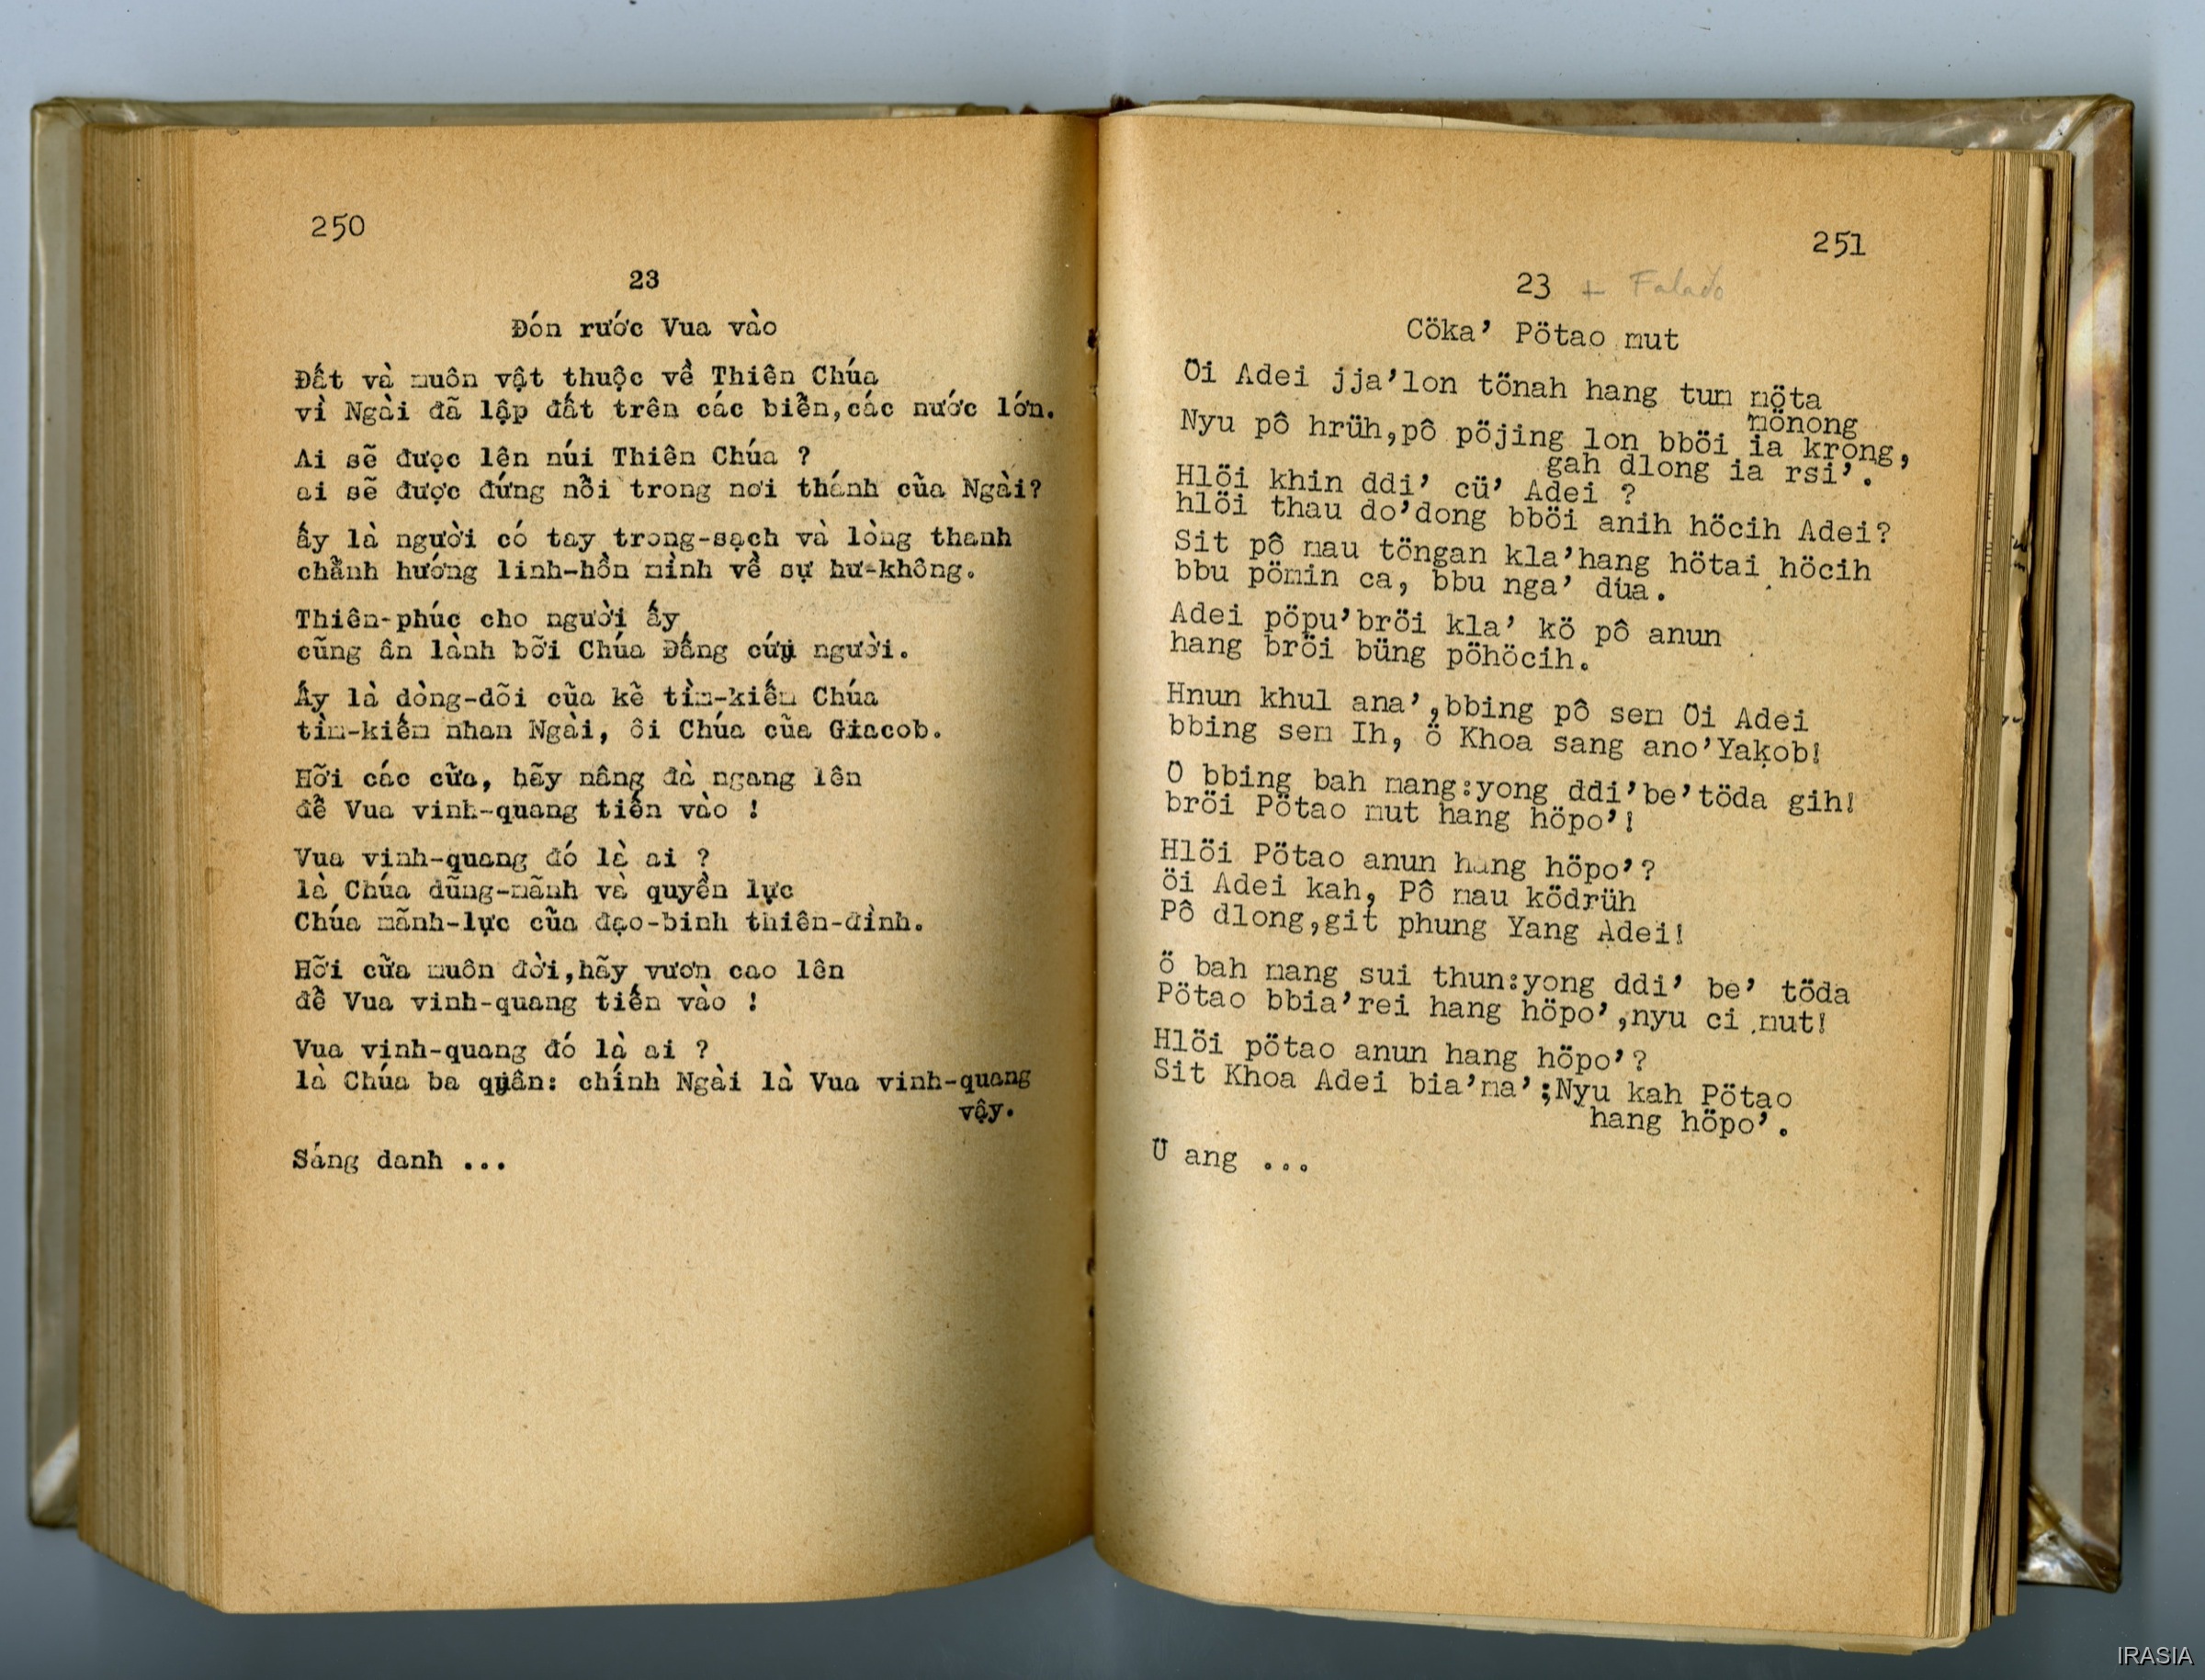 250
23
Đón rước Vua vào
Đất và muôn vật thuộc về Thiên Chúa
vì Ngài đã lập đất trên các biển,các nước lớn.
Ai sẽ được lên núi Thiên Chúa ?
ai sẽ được đứng nổi trong nơi thánh của Ngài?
ấy là người có tay trong-sạch và lòng thanh
chẳnh hướng linh-hồn mình về sự hư-không.
Thiên-phúc cho người ấy
cũng ân lành bởi Chúa Đấng cứu người.
Ấy là dòng-dõi của kẻ tìm-kiếm Chúa
tìm-kiếm nhan Ngài, ôi Chúa của Giacob.
Hỡi các cửa, hãy nâng đà ngang lên
để Vua vinh-quang tiến vào !
Vua vinh-quang đó là ai ?
là Chúa dũng-mãnh và quyền lực
Chúa mãnh-lực của đạo-binh thiên-đình.
Hỡi cửa muôn đời,hãy vươn cao lên
để Vua vinh-quang tiến vào !
Vua vinh-quang đó là ai ?
là Chúa ba quân: chính Ngài là Vua vinh-quang
vậy.
Sáng danh ...
251
23 +
Cöka' Pötao mut
Öi Adei jja'lon tönah hang tum möta
mönong
Nyu pô hrüh,pô pöjing lon bböi ia krong,
gah dlong ia rsi'.
Hlöi khin ddi' cü' Adei ?
hlöi thau do'dong bböi anih höcih Adei?
Sit pô mau töngan kla'hang hötai höcih
bbu pömin ca, bbu nga' düa.
Adei pöpu'bröi kla' kö pô anun
hang bröi büng pöhöcih.
Hnun khul ana',bbing pô sem Öi Adei
bbing sem Ih, ö Khoa sang ano'Yakob!
Ö bbing bah mang:yong ddi'be'töda gih!
bröi Pötao mut hang höpo'!
Hlöi Pötao anun hang höpo'?
öi Adei kah, Pô mau ködrüh
Pô dlong,git phung Yang Adei!
ö bah mang sui thun:yong ddi' be' töda
Pötao bbia'rei hang höpo',nyu ci mut!
Hlöi pötao anun hang höpo'?
Sit Khoa Adei bia'ma';Nyu kah Pötao
hang höpo'.
Ü ang ...
IRASIA